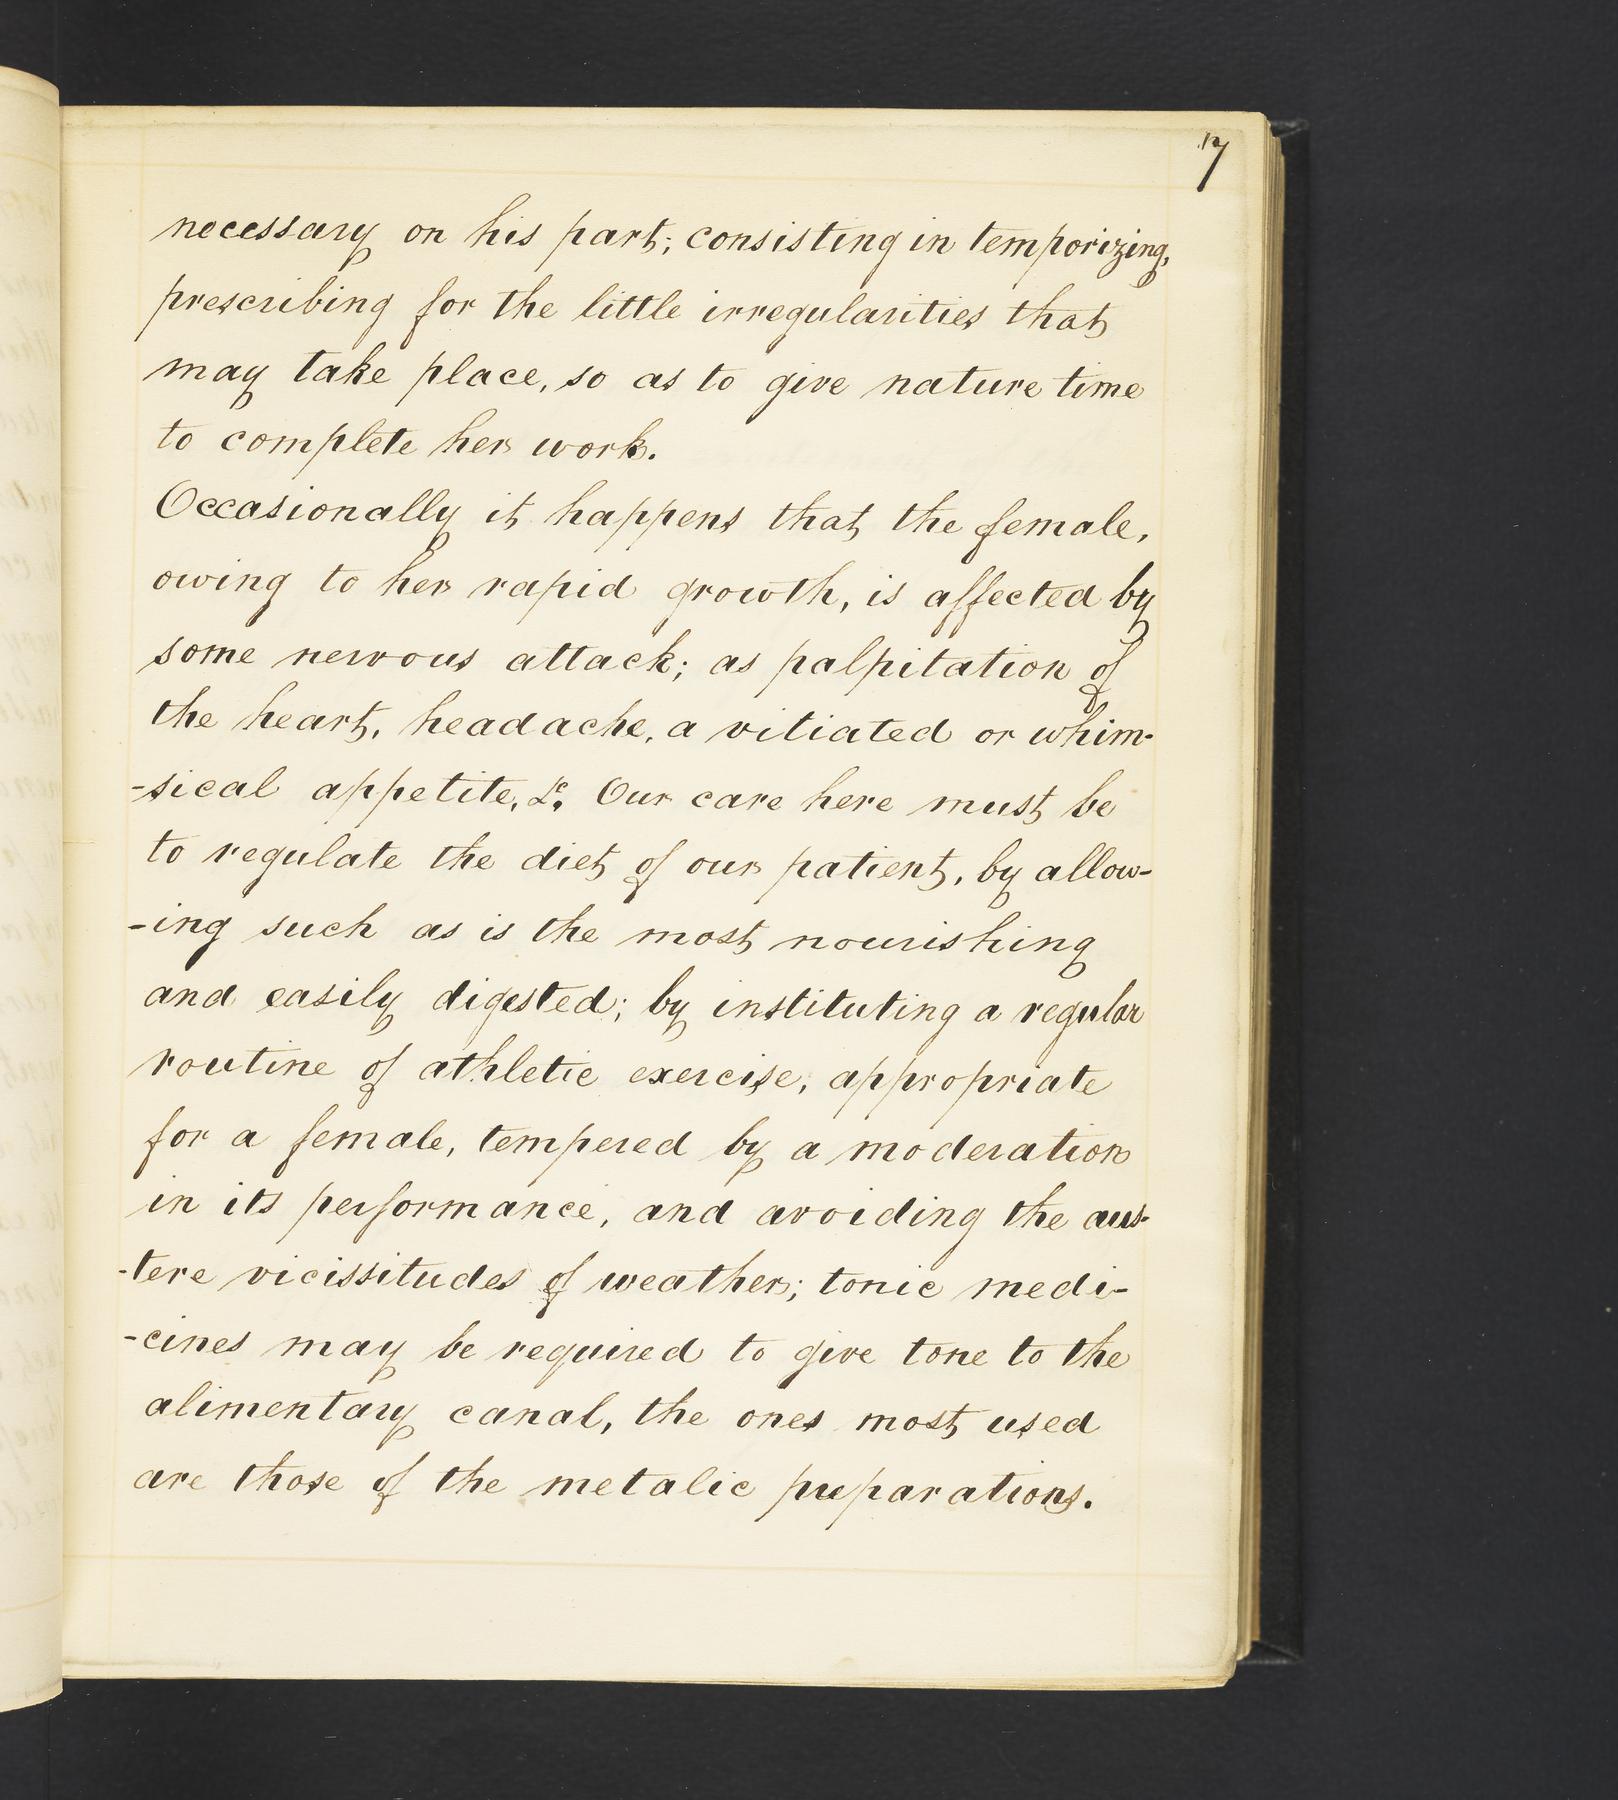 17
necessary on his part; consisting in temporizing,
prescribing for the little irregularities that
may take place, so as to give nature time
to complete her work.
Occasionally it happens that the female,
owing to her rapid growth, is affected by
some nervous attack; as palpitation of
the heart, headache, a vitiated or whim-
-sical appetite, &c. Our care here must be
to regulate the diet of our patient, by allow-
-ing such as is the most nourishing
and easily digested; by instituting a regular
routine of athletic exercise, appropriate
for a female, tempered by a moderation
in its performance, and avoiding the aus-
-tere vicissitudes of weather; tonic medi-
-cines may be required to give tone to the
alimentary canal, the ones most used
are those of the metalic preparations.